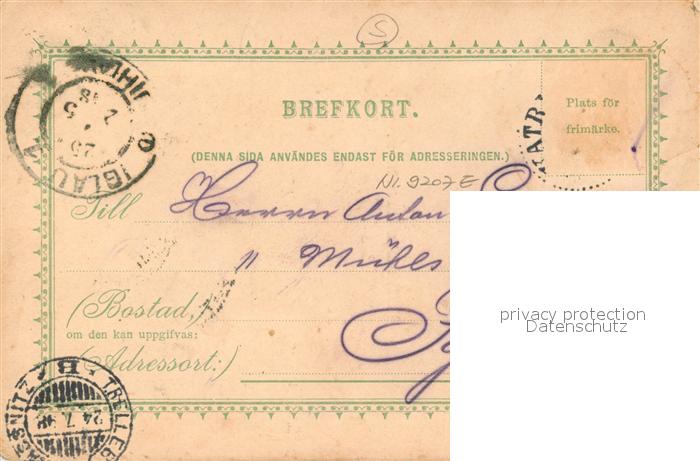 S
BREFKORT.
Plats för
frimärke.
(DENNA SIDA ANVÄNDES ENDAST FÖR ADRESSERINGEN.)
IGLAU
25
N1.9207E
Till Herrn Anton
" Mühls
privacy protection
Datenschutz
(Bostad,
om den kan uppgifvas:
(Adressort:)
TRELLEB
SSNITZ
24.7.98